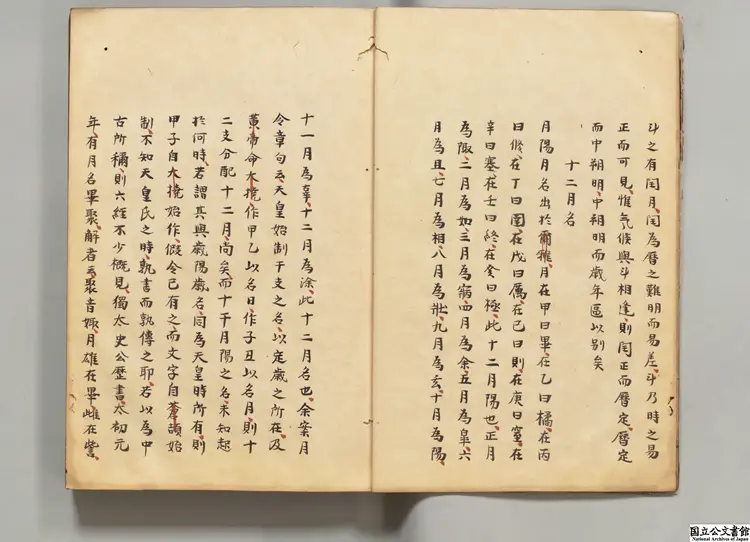 斗之有閏月、閏為曆之難明而易差、斗乃時之易
正而可見、惟氣候與斗相逢、則閏正而曆定、曆定
而中朔明、中朔明而歲年區以別矣
十二月名
月陽月名出於爾雅、月在甲曰畢、在乙曰橘、在丙
曰修、在丁曰圉、在戊曰厲、在己曰則、在庚曰窒、在
辛曰塞、在壬曰終、在癸曰極、此十二月陽也、正月
為陬、二月為如、三月為寎、四月為余、五月為皐、六
月為且、七月為相、八月為壯、九月為玄、十月為陽、
十一月為辜、十二月為涂、此十二月名也、余案月
令章句云、天皇始制干支之名、以定歲之所在、及
黃帝命大撓、作甲乙以名日、作子丑以名月、則十
二支分配十二月、尚矣、而十干月陽之名、未知起
於何時、若謂其與歲陽歲名、同為天皇時所有、則
甲子自大撓始作、假令已有之、而文字自蒼頡始
制、不知天皇氏之時、孰書而孰傳之耶、若以為中
古所稱、則六經不少槪見、獨太史公歷書、太初元
年、有月名畢聚、解者云、聚音娵、月雄在畢、雌在訾、
国立公文書館
National Archives of Japan